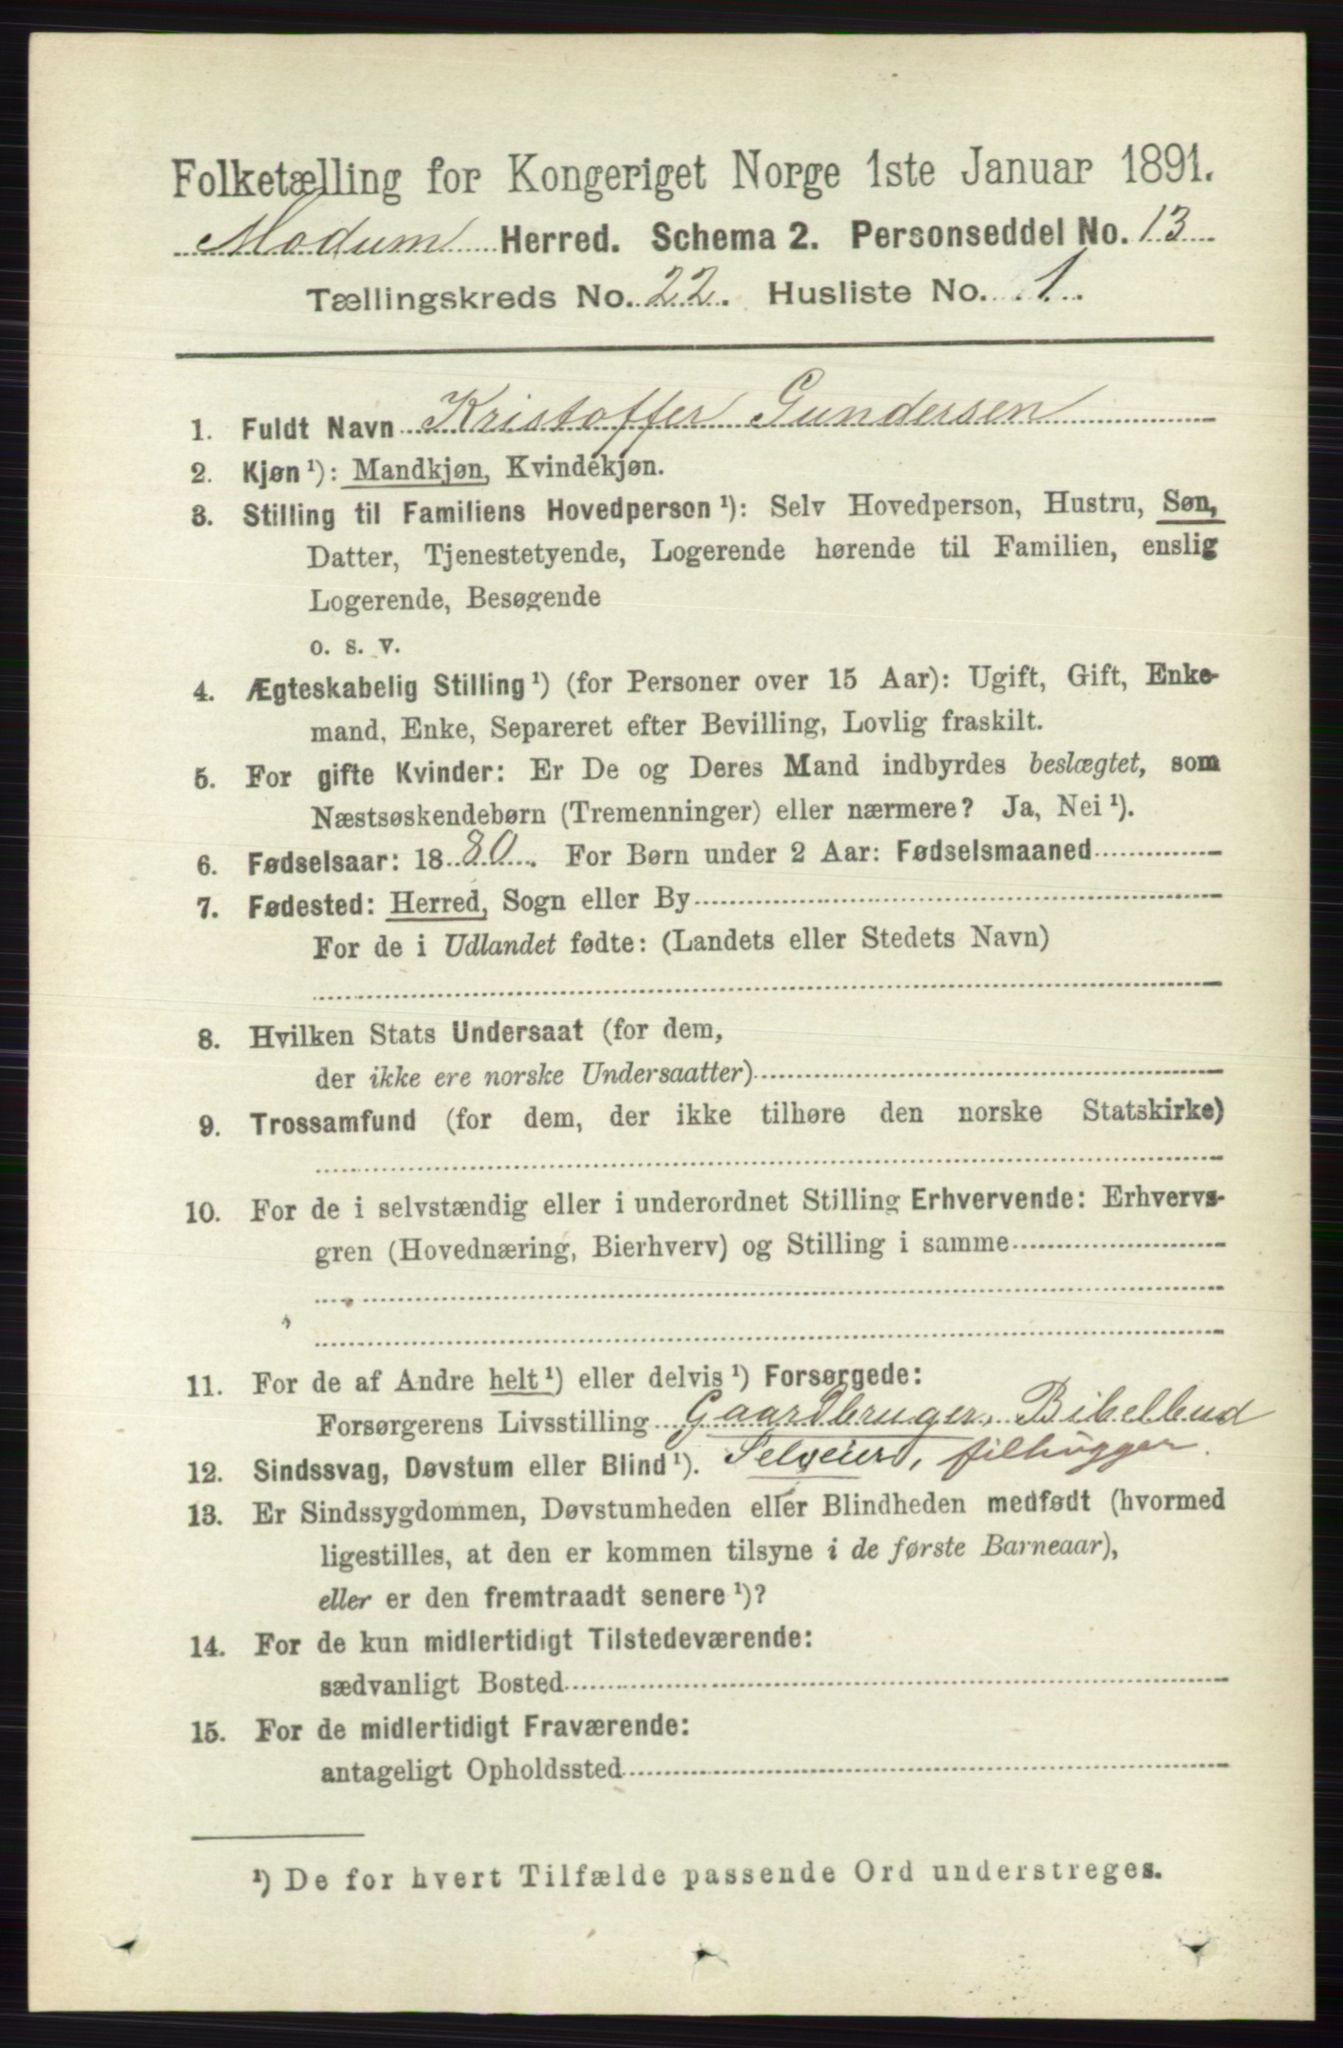 Folketælling for Kongeriget Norge 1ste Januar 1891.
Modum Herred. Schema 2. Personseddel No. 13
Tællingskreds No. 22. Husliste No. 1.
1. Fuldt Navn Kristoffer Gundersen
2. Kjøn ¹): Mandkjøn, Kvindekjøn.
3. Stilling til Familiens Hovedperson ¹): Selv Hovedperson, Hustru, Søn,
Datter, Tjenestetyende, Logerende hørende til Familien, enslig
Logerende, Besøgende
o. s. v.
4. Ægteskabelig Stilling ¹) (for Personer over 15 Aar): Ugift, Gift, Enke-
mand, Enke, Separeret efter Bevilling, Lovlig fraskilt.
5. For gifte Kvinder: Er De og Deres Mand indbyrdes beslægtet, som
Næstsøskendebørn (Tremenninger) eller nærmere? Ja, Nei ¹).
6. Fødselsaar: 1880. For Børn under 2 Aar: Fødselsmaaned
7. Fødested: Herred, Sogn eller By
For de i Udlandet fødte: (Landets eller Stedets Navn)
8. Hvilken Stats Undersaat (for dem,
der ikke ere norske Undersaatter)
9. Trossamfund (for dem, der ikke tilhøre den norske Statskirke)
10. For de i selvstændig eller i underordnet Stilling Erhvervende: Erhvervs-
gren (Hovednæring, Bierhverv) og Stilling i samme
11. For de af Andre helt ¹) eller delvis ¹) Forsørgede:
Forsørgerens Livsstilling Gaardbruger, Bibelbud
12. Sindssvag, Døvstum eller Blind ¹). Selveier, filhugger.
13. Er Sindssygdommen, Døvstumheden eller Blindheden medfødt (hvormed
ligestilles, at den er kommen tilsyne i de første Barneaar),
eller er den fremtraadt senere ¹)?
14. For de kun midlertidigt Tilstedeværende:
sædvanligt Bosted
15. For de midlertidigt Fraværende:
antageligt Opholdssted
¹) De for hvert Tilfælde passende Ord understreges.